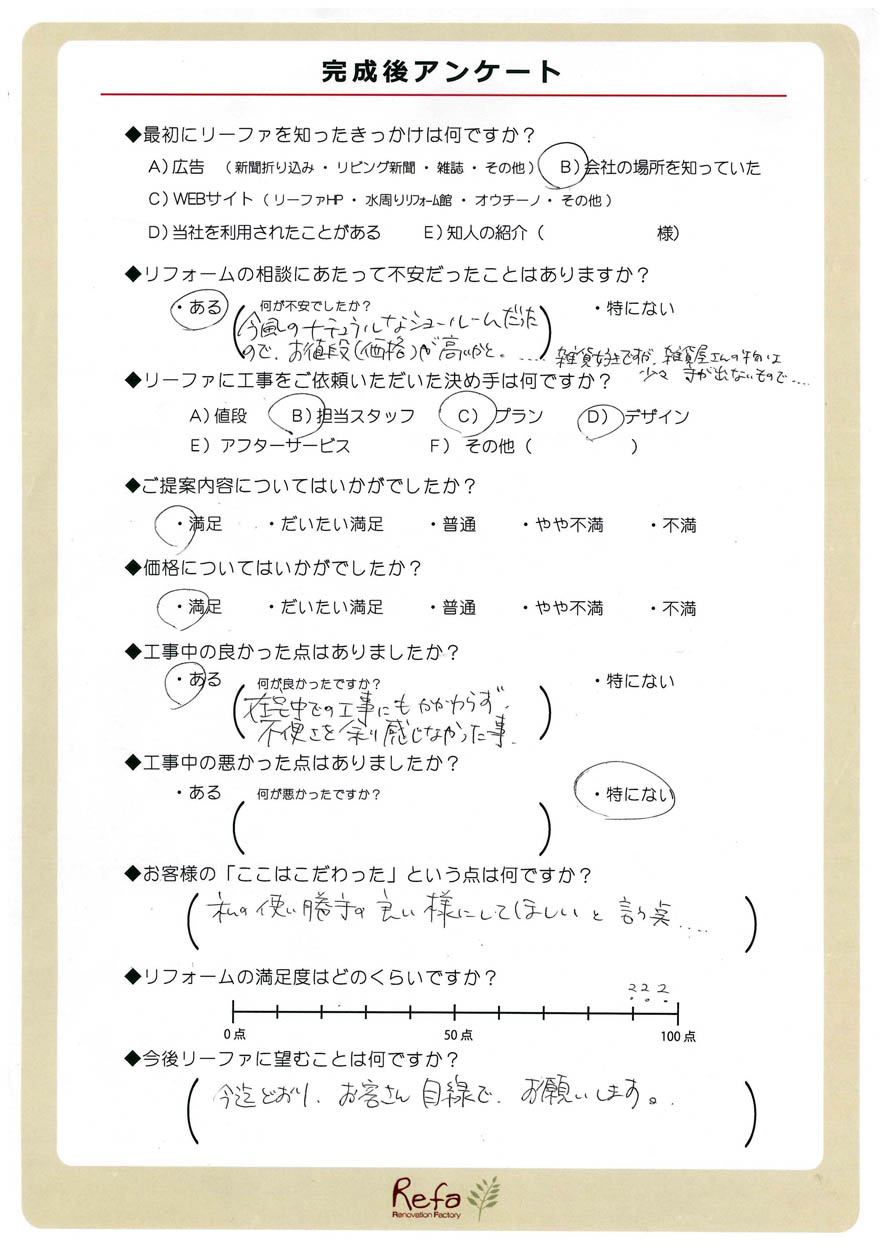 完成後アンケート
◆最初にリーファを知ったきっかけは何ですか？
A）広告 （新聞折り込み・リビング新聞・雑誌・その他） B）会社の場所を知っていた
C）WEBサイト（リーファHP・水周りリフォーム館・オウチーノ・その他）
D）当社を利用されたことがある E）知人の紹介（ 様）
◆リフォームの相談にあたって不安だったことはありますか？
・ある 何が不安でしたか？ ・特にない
今風のナチュラルなショールームだった
ので、お値段（価格）が高いかと。....
雑貨好きですが、雑貨屋さんの物は
少々 手が出ないもので....
◆リーファに工事をご依頼いただいた決め手は何ですか？
A）値段 B）担当スタッフ C）プラン D）デザイン
E）アフターサービス F）その他（ ）
◆ご提案内容についてはいかがでしたか？
・満足 ・だいたい満足 ・普通 ・やや不満 ・不満
◆価格についてはいかがでしたか？
・満足 ・だいたい満足 ・普通 ・やや不満 ・不満
◆工事中の良かった点はありましたか？
・ある 何が良かったですか？ ・特にない
在宅中での工事にもかかわらず、
不便さを余り感じなかった事.
◆工事中の悪かった点はありましたか？
・ある 何が悪かったですか？ ・特にない
◆お客様の「ここはこだわった」という点は何ですか？
私の使い勝手の良い様にしてほしいと言う点....
◆リフォームの満足度はどのくらいですか？
0点 50点 100点
◆今後リーファに望むことは何ですか？
今迄どおり、お客さん目線で、お願いします。
Refa
Renovation Factory